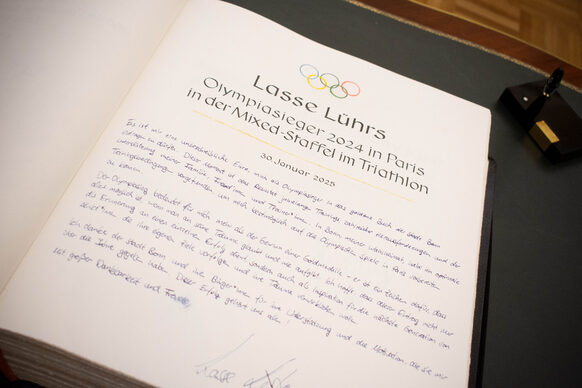 Lasse Lührs
Olympiasieger 2024 in Paris
in der Mixed-Staffel im Triathlon
30. Januar 2025
Es ist mir eine unbeschreibliche Ehre, mich als Olympiasieger in das goldene Buch der Stadt Bonn
eintragen zu dürfen. Dieser Moment ist das Resultat jahrelangen Trainings, zahlreicher Herausforderungen und der
Unterstützung meiner Familie, Freund*innen und Trainer*innen. In Bonn, meiner Wahlheimat, habe ich optimale
Trainingsbedingungen vorgefunden, um mich bestmöglich auf die Olympischen Spiele in Paris vorbereiten
zu können.
Der Olympiasieg bedeutet für mich mehr als der Gewinn einer Goldmedaille - er ist ein Zeichen dafür, dass
alles möglich ist, wenn man an seine Träume glaubt und nie aufgibt. Ich hoffe, dass dieser Eintrag nicht nur
die Erinnerung an einen einzelnen Erfolg dient, sondern auch als Inspiration für die nächste Generation von
die ihre eigenen Ziele verfolgen und ihre Träume verwirklichen wollen.
Ich danke der Stadt Bonn und ihren Bürger*innen für ihre Unterstützung und die Motivation, die sie mir
über die Jahre gegeben haben. Dieser Erfolg gehört uns allen!
Mit großer Dankbarkeit und Freude
Lasse